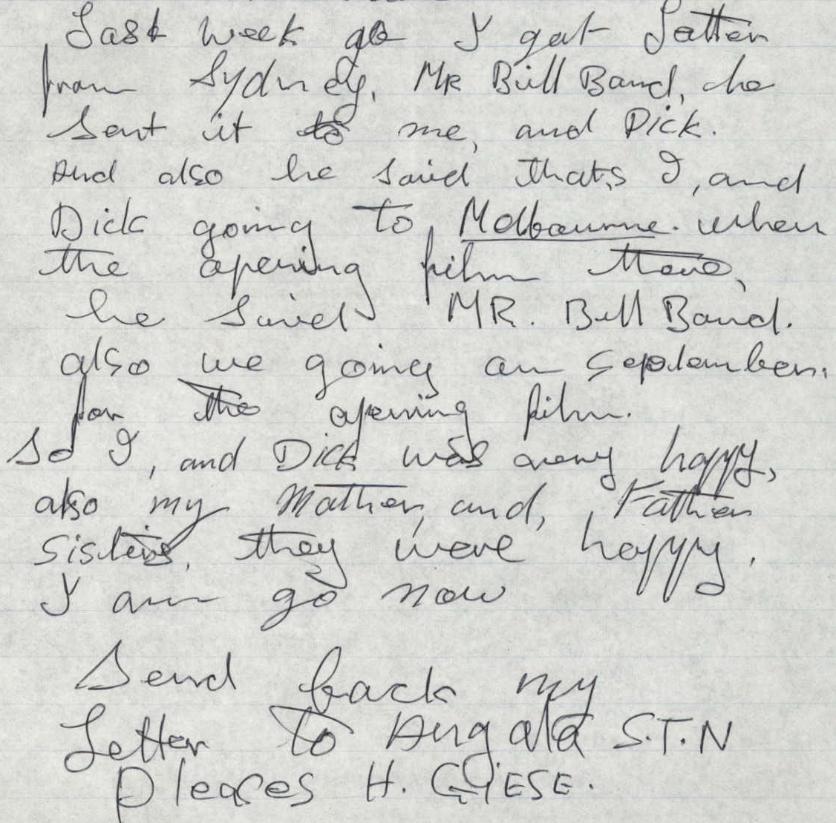 Last week go I gat Latter
from Sydney, MR Bill Band, he
Sent it to me, and Dick.
And also he said thats I, and
Dick going to, Melbourne. when
the opening film there,
he said MR. Bill Band.
also we going an September.
for the opening film.
So I, and Dick was very happy,
also my Mather, and, Father
Sisters, they were happy.
I am go now
Send back my
Letter to Augala S.T.N
Pleases H. GIESE.